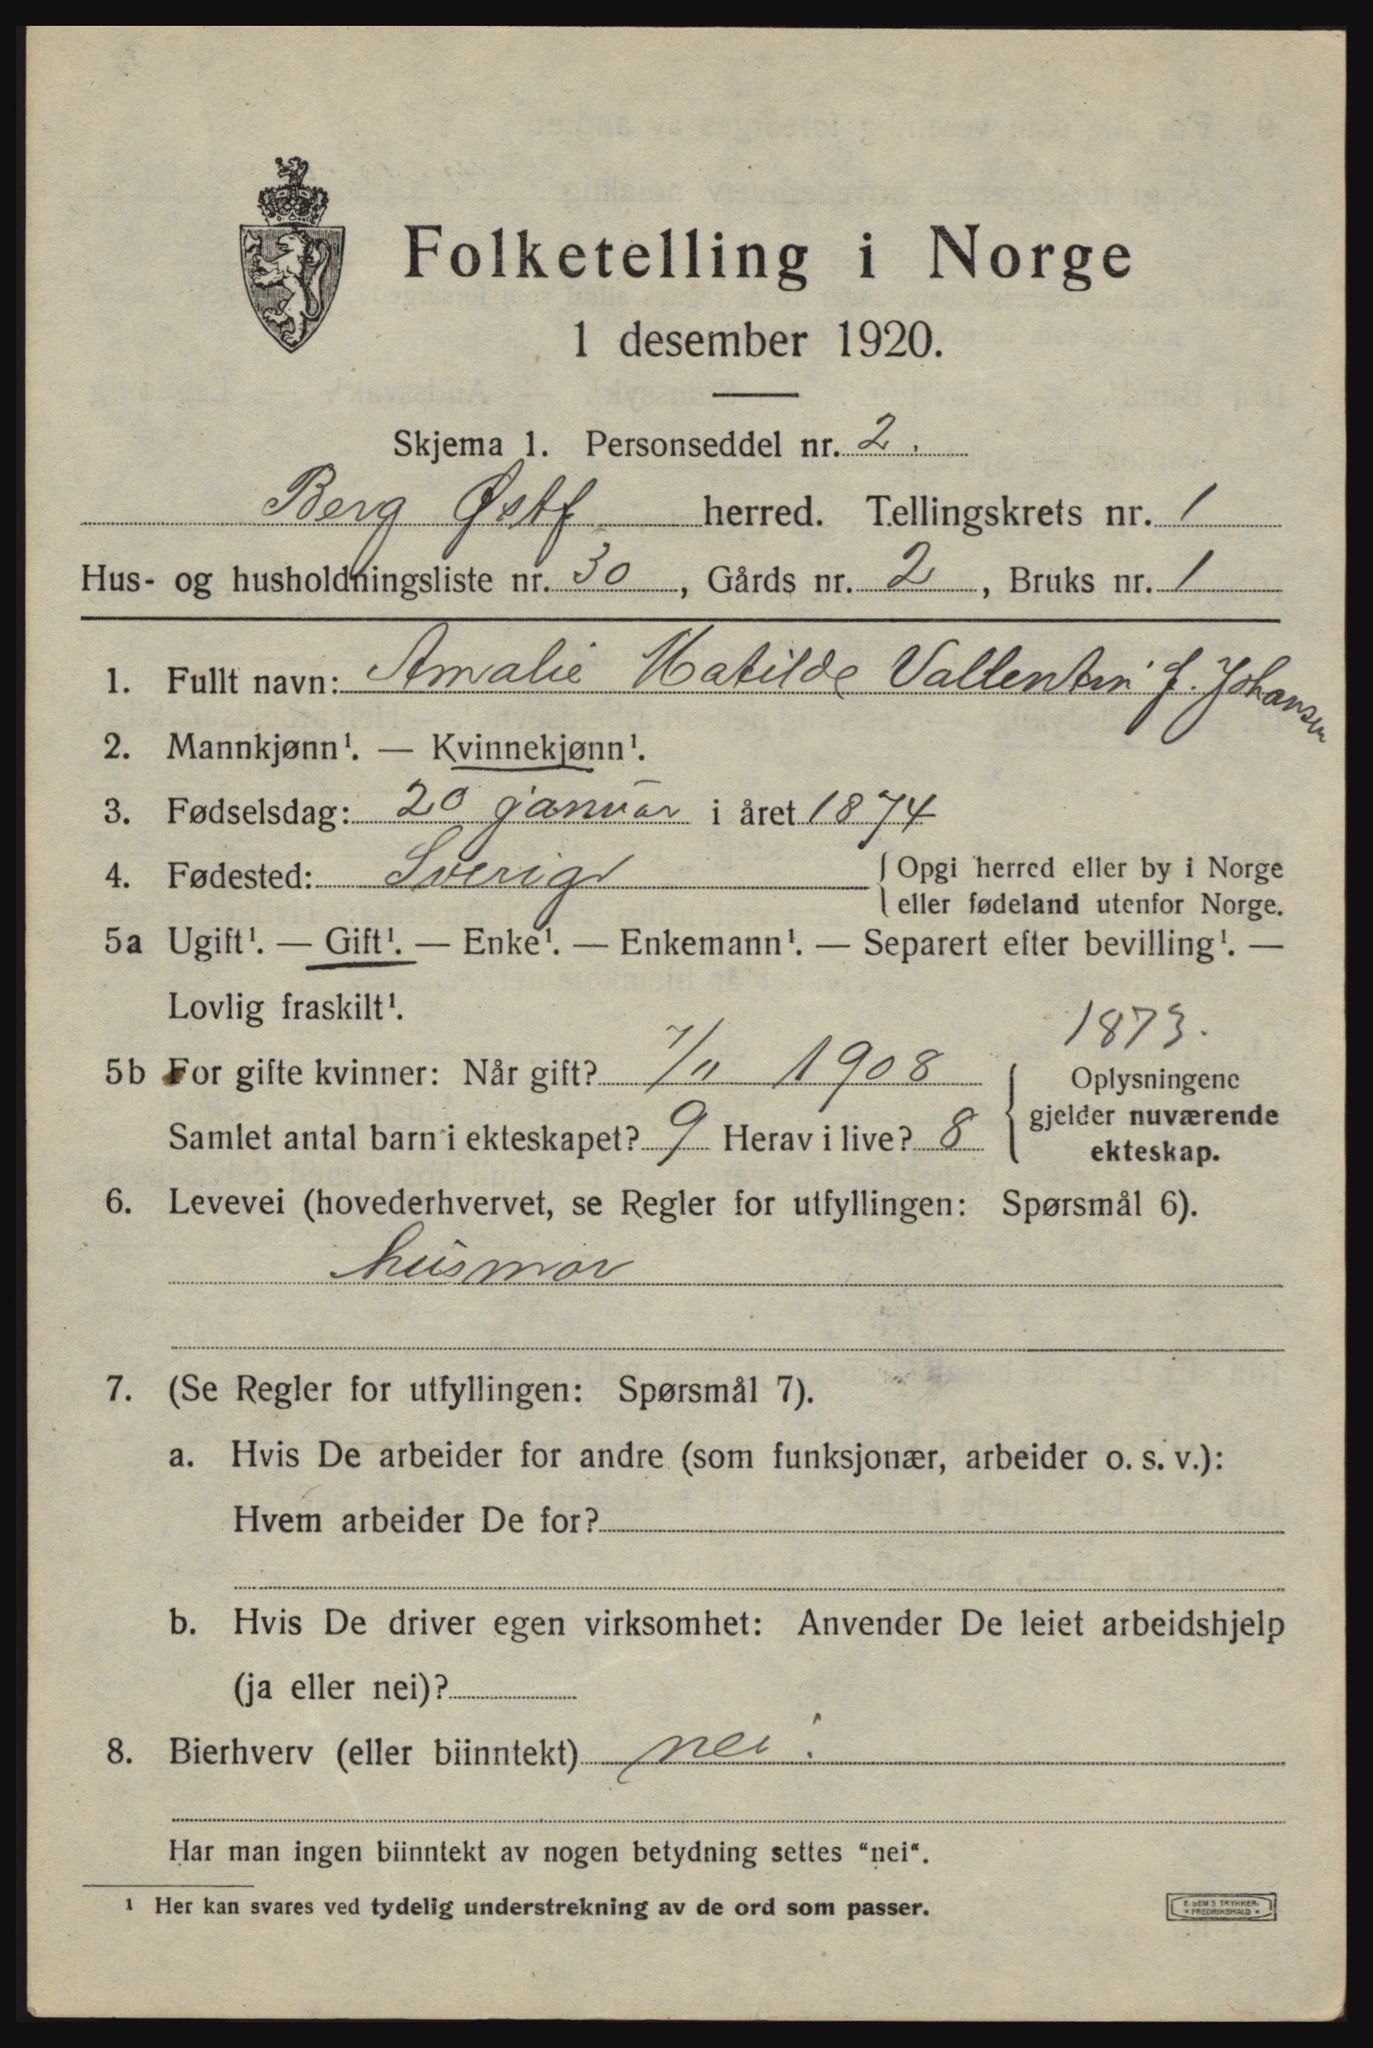 Folketelling i Norge
1 desember 1920.
Skjema 1. Personseddel nr. 2.
Berg Østf herred. Tellingskrets nr. 1
Hus- og husholdningsliste nr. 30, Gårds nr. 2, Bruks nr. 1
1. Fullt navn: Amalie Matilde Vallentin f. Johansen
2. Mannkjønn¹. — Kvinnekjønn¹.
3. Fødselsdag: 20 januar i året 1874
4. Fødested: Sverige { Opgi herred eller by i Norge
eller fødeland utenfor Norge.
5a Ugift¹. — Gift¹. — Enke¹. — Enkemann¹. — Separert efter bevilling¹. —
Lovlig fraskilt¹.
1873.
5b For gifte kvinner: Når gift? 7/11 1908
Samlet antal barn i ekteskapet? 9 Herav i live? 8
Oplysningene
gjelder nuværende
ekteskap.
6. Levevei (hovederhvervet, se Regler for utfyllingen: Spørsmål 6).
husmor
7. (Se Regler for utfyllingen: Spørsmål 7).
a. Hvis De arbeider for andre (som funksjonær, arbeider o. s. v.):
Hvem arbeider De for?
b. Hvis De driver egen virksomhet: Anvender De leiet arbeidshjelp
(ja eller nei)?
8. Bierhverv (eller biinntekt) nei.
Har man ingen biinntekt av nogen betydning settes "nei".
¹ Her kan svares ved tydelig understrekning av de ord som passer.
E. SEM'S TRYKKERI
* FREDRIKSHALD *